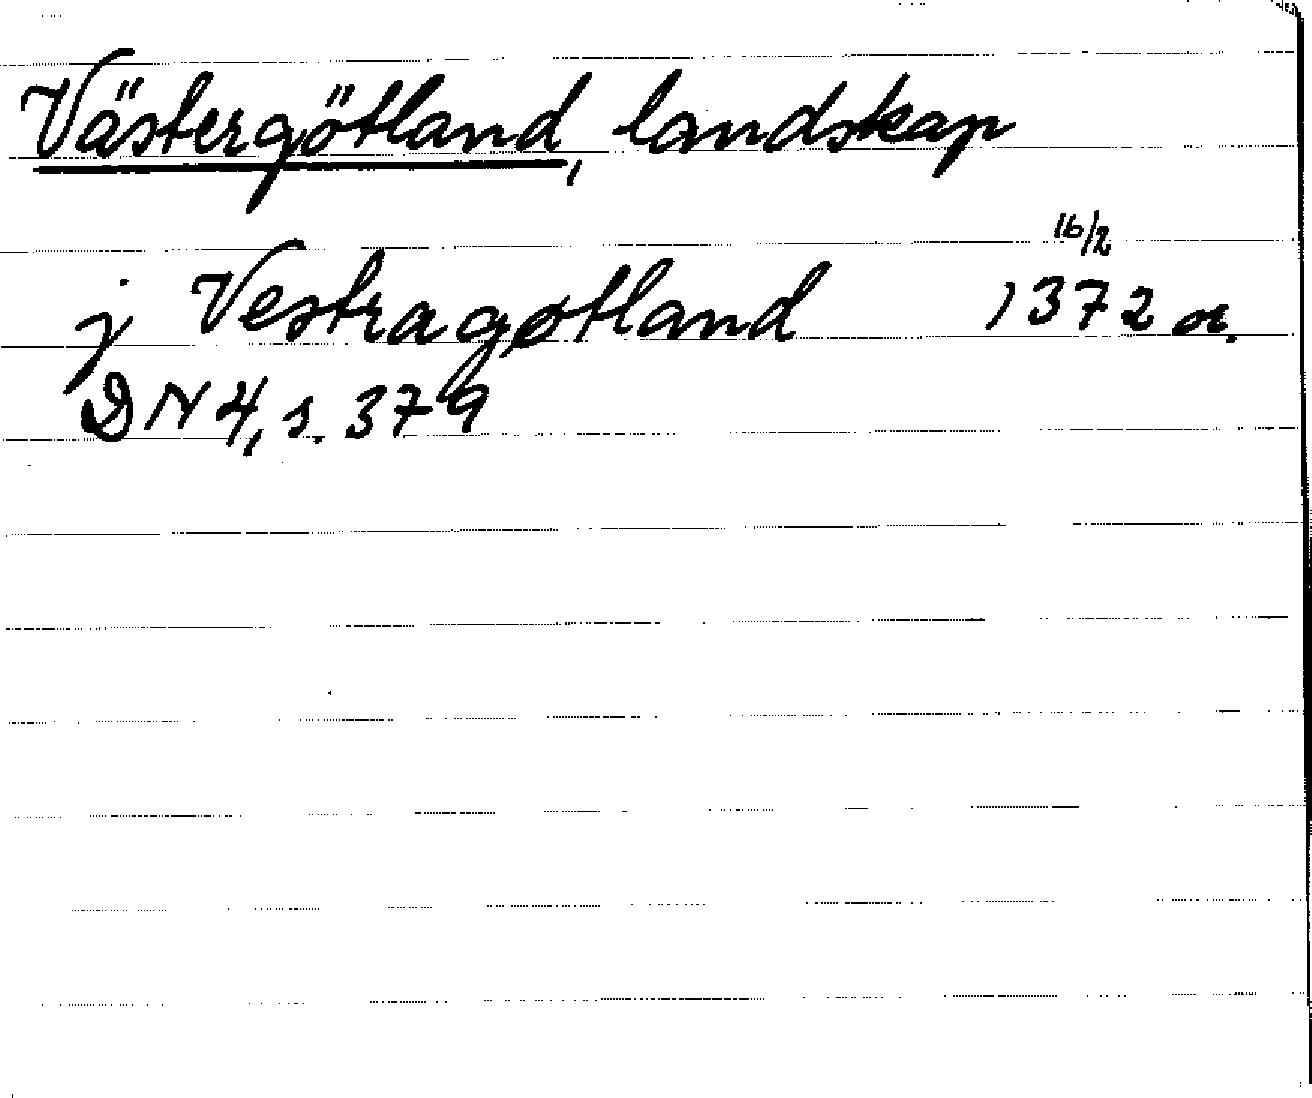 Västergötland, landskap
16/2
j Vestragøtland 1372 or.
DN 4, s. 379